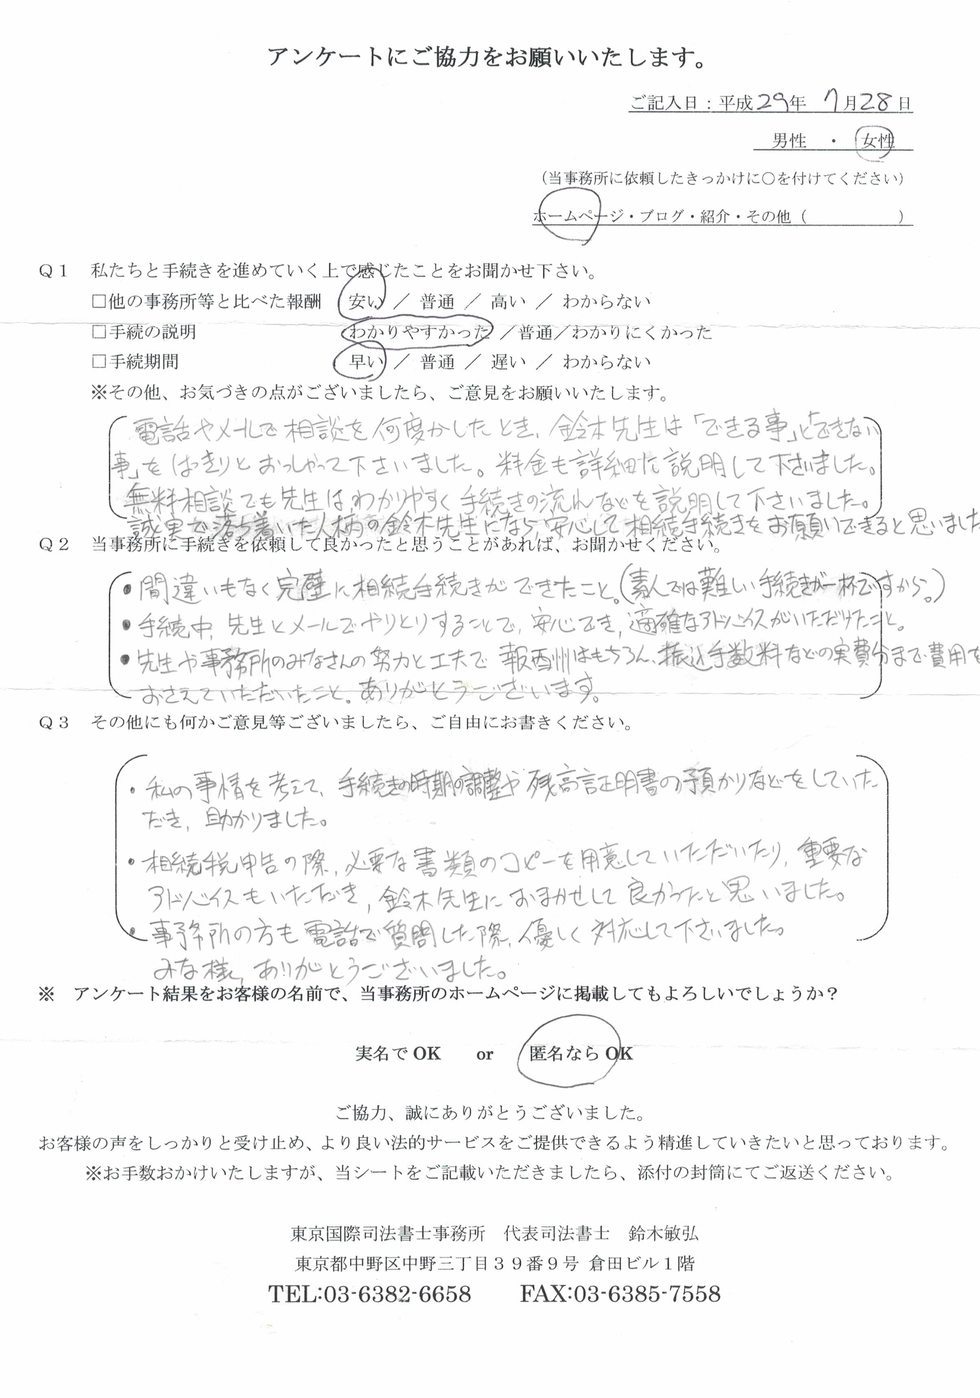 アンケートにご協力をお願いいたします。
ご記入日：平成29年 7月28日
男性 ・ 女性
（当事務所に依頼したきっかけに○を付けてください）
ホームページ・ブログ・紹介・その他（ ）
Q1 私たちと手続きを進めていく上で感じたことをお聞かせ下さい。
□他の事務所等と比べた報酬 安い ／ 普通 ／ 高い ／ わからない
□手続の説明 わかりやすかった ／普通／わかりにくかった
□手続期間 早い ／ 普通 ／ 遅い ／ わからない
※その他、お気づきの点がございましたら、ご意見をお願いいたします。
電話やメールで相談を何度かしたとき、鈴木先生は「できる事」と「できない
事」をはっきりとおっしゃって下さいました。料金も詳細に説明して下さいました。
無料相談でも先生はわかりやすく手続きの流れなどを説明して下さいました。
誠実で落ち着いた人柄の鈴木先生になら、安心して相続手続きをお願いできると思いました
Q2 当事務所に手続きを依頼して良かったと思うことがあれば、お聞かせください。
・間違いもなく完璧に相続手続きができたこと。（素人では難しい手続きが一杯ですから。）
・手続中、先生とメールでやりとりすることで、安心でき、適確なアドバイスがいただけたこと。
・先生や事務所のみなさんの努力と工夫で 報酬はもちろん、振込手数料などの実費分まで費用を
おさえていただいたこと。ありがとうございます。
Q3 その他にも何かご意見等ございましたら、ご自由にお書きください。
・私の事情を考えて、手続きの時期の調整や残高証明書の預かりなどをしていた
だき、助かりました。
・相続税申告の際、必要な書類のコピーを用意していただいたり、重要な
アドバイスもいただき、鈴木先生におまかせして良かったと思いました。
・事務所の方も電話で質問した際、優しく対応して下さいました。
みな様、ありがとうございました。
※ アンケート結果をお客様の名前で、当事務所のホームページに掲載してもよろしいでしょうか？
実名でOK or 匿名ならOK
ご協力、誠にありがとうございました。
お客様の声をしっかりと受け止め、より良い法的サービスをご提供できるよう精進していきたいと思っております。
※お手数おかけいたしますが、当シートをご記載いただきましたら、添付の封筒にてご返送ください。
東京国際司法書士事務所 代表司法書士 鈴木敏弘
東京都中野区中野三丁目39番9号 倉田ビル1階
TEL:03-6382-6658 FAX:03-6385-7558